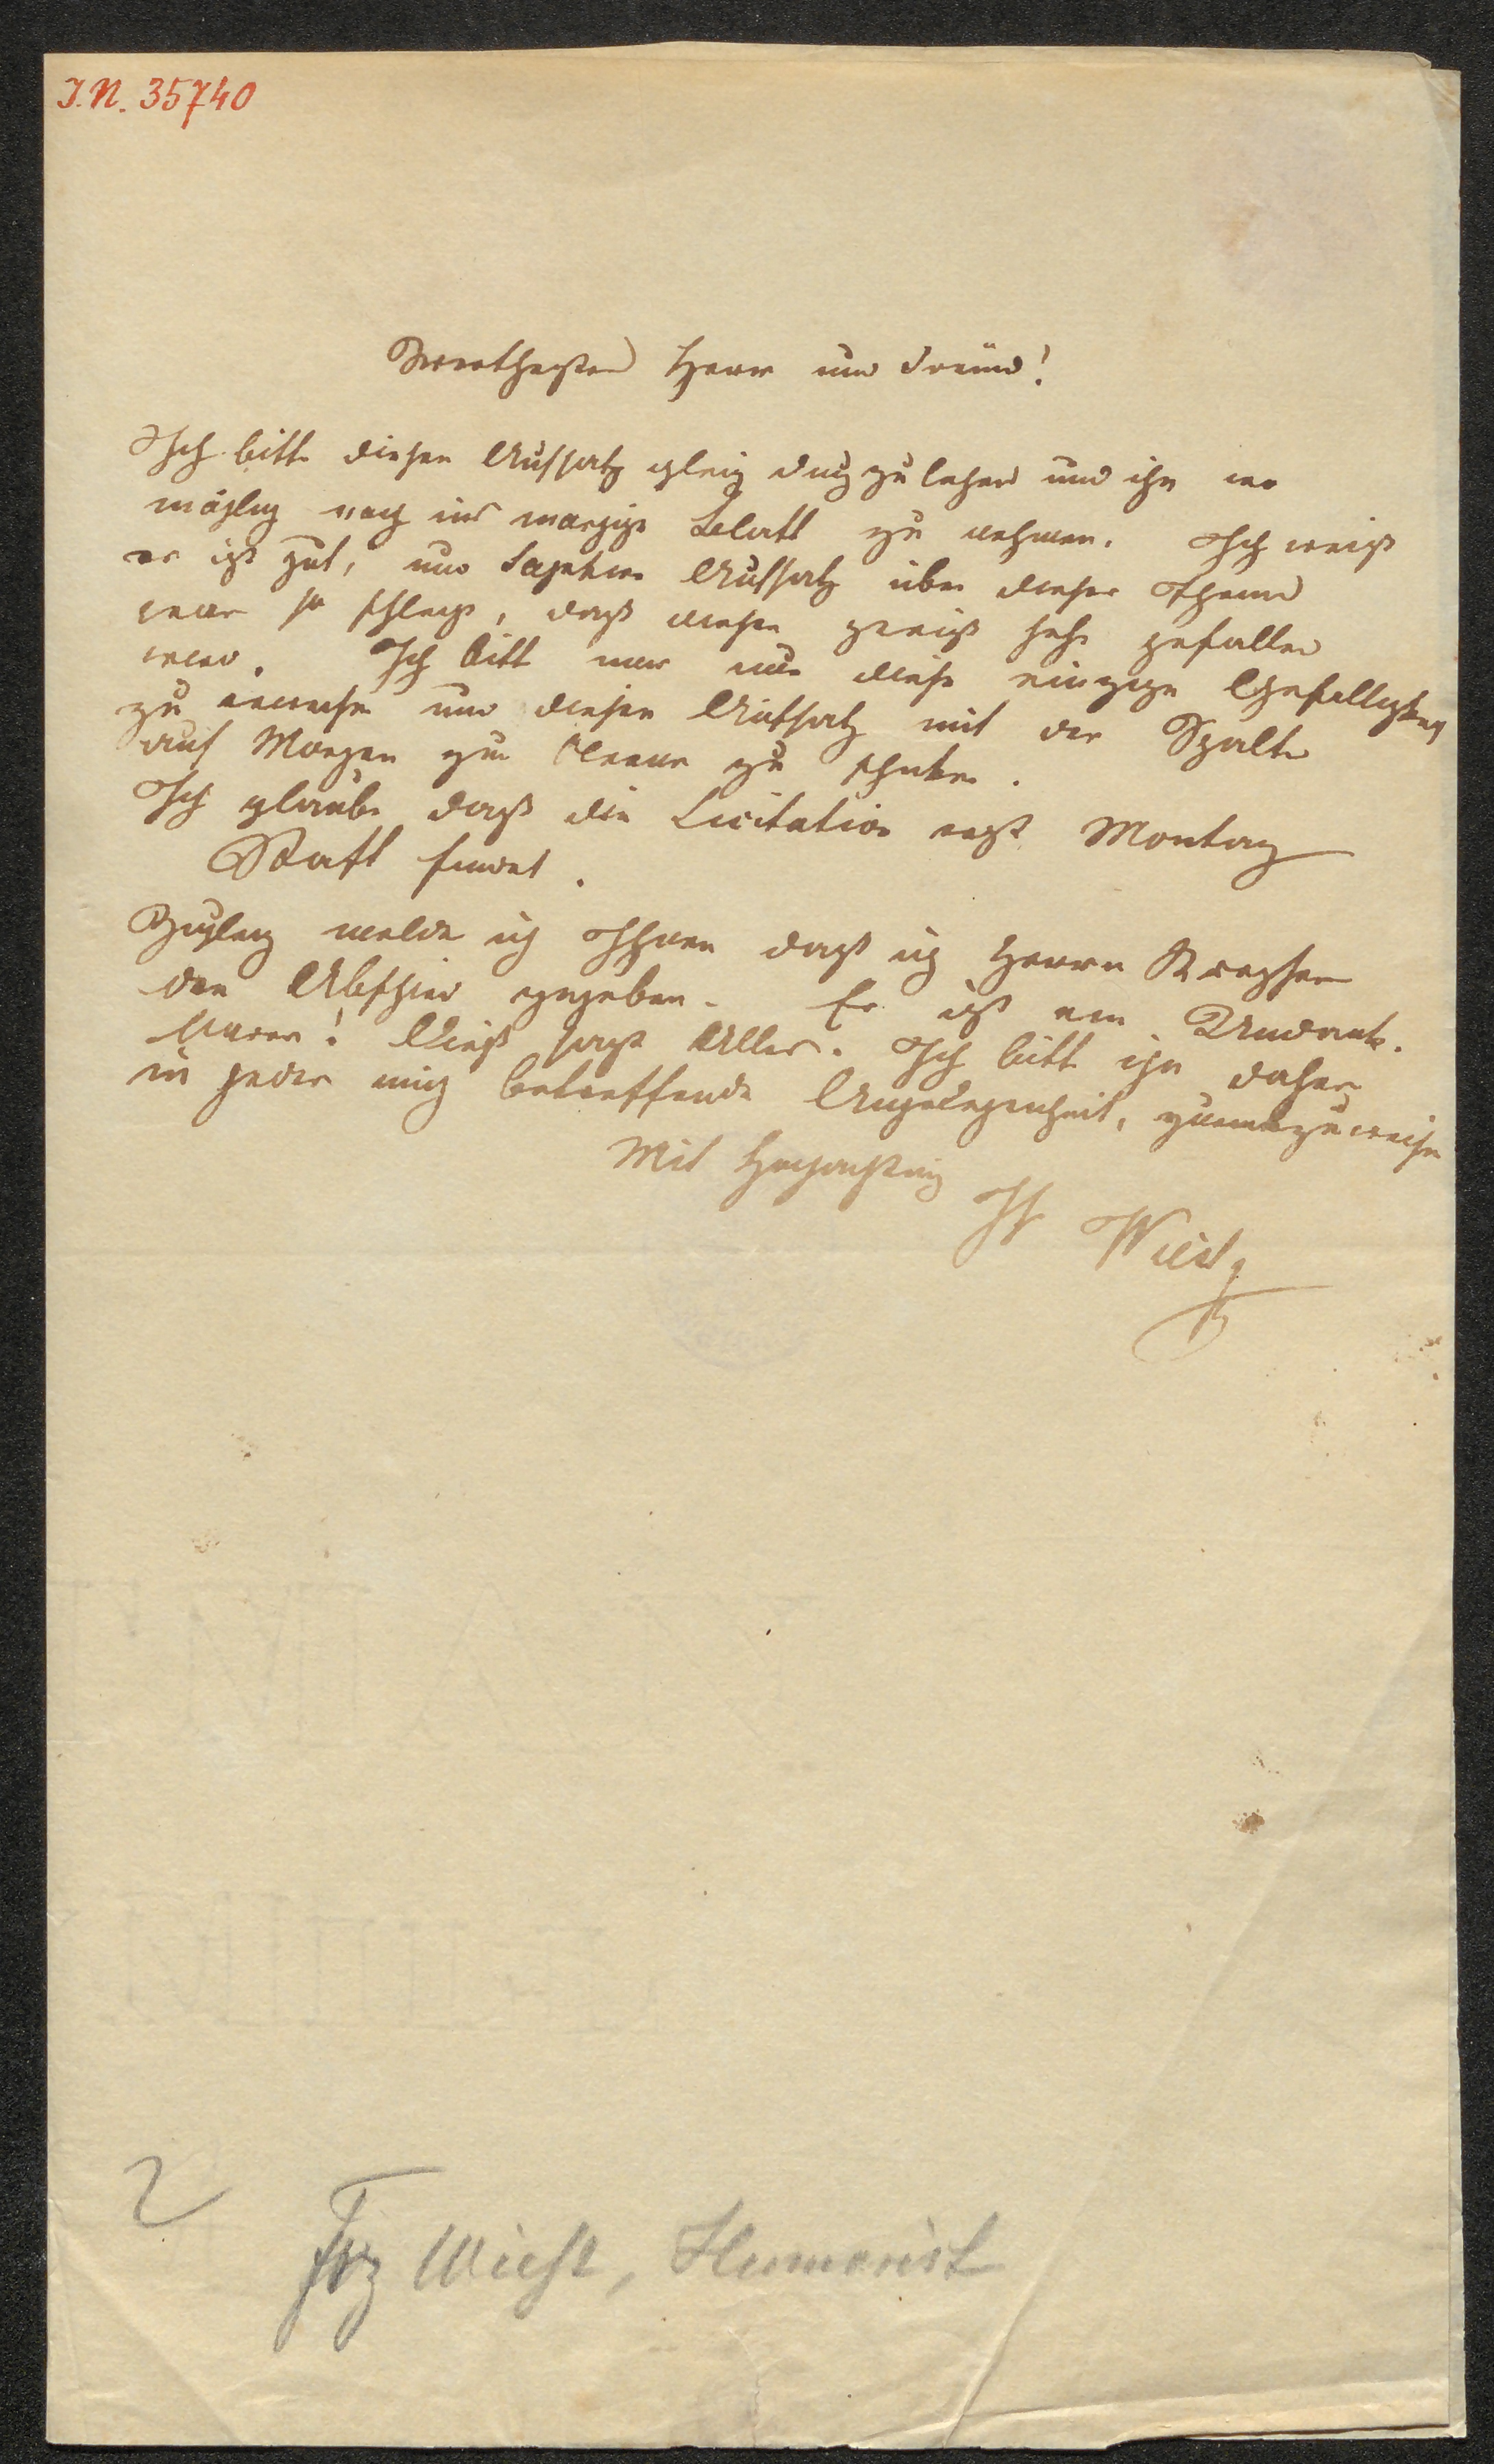 I.N. 35740
Werthester Herr und Freund!
Ich bitte diesen Aufsatz gleich durchzulesen und ihn wo
möglich noch ins morgige Blatt zu nehmen. Ich weiß
er ist gut, und Saphirs Aufsatz über dieses Thema
war so schlecht, daß dieser gewiß sehr gefallen
wird. Ich bitte mir nur diese einzige Gefälligkeit
zu erweisen und diesen Aufsatz mit der Spalte
auf Morgen zur Censur zu schicken.
Ich glaube daß die Licitation erst Montag
Statt findet.
Zugleich melde ich Ihnen daß ich Herrn
den Abschied gegeben. Er ist ein Undank-
barer! Dieß sagt Alles. Ich bitte ihn daher
in jeder mich betreffenden Angelegenheit, zurückzuweisen
Mit Hochachtung
Ihr Wiest
2
Frz Wiest, Humorist